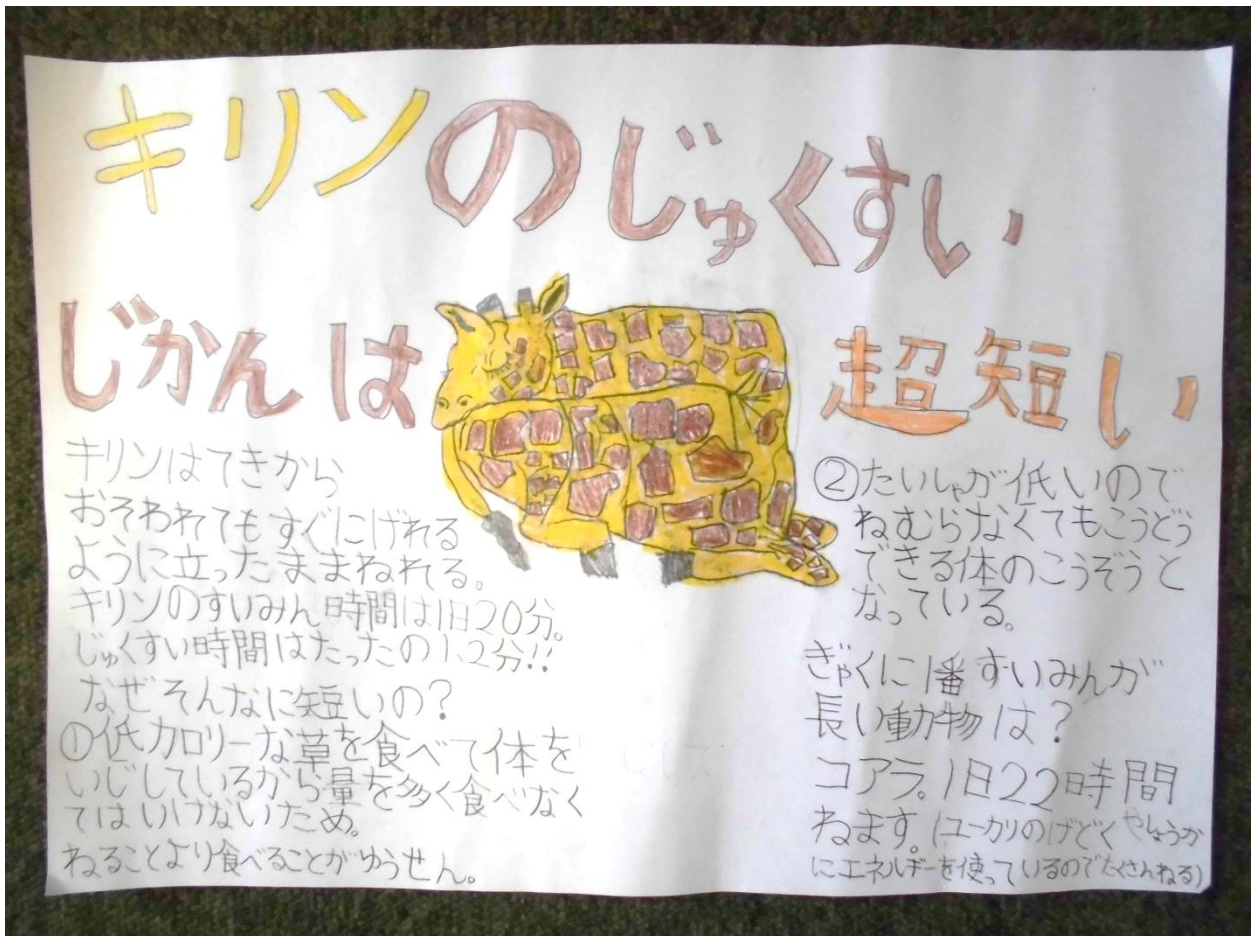 キリンのじゅくすい
じかんは 超短い
キリンはてきから
おそわれてもすぐにげれる
ように立ったままねれる。
キリンのすいみん時間は1日20分。
じゅくすい時間はたったの1、2分!!
なぜそんなに短いの?
①低カロリーな草を食べて体を
いじしているから量を多く食べなく
てはいけないため。
ねることより食べることがゆうせん。
②たいしゃが低いので
ねむらなくてもこうどう
できる体のこうぞうと
なっている。
ぎゃくに1番すいみんが
長い動物は?
コアラ。1日22時間
ねます。(ユーカリのげどくやしょうか
にエネルギーを使っているのでたくさんねる)